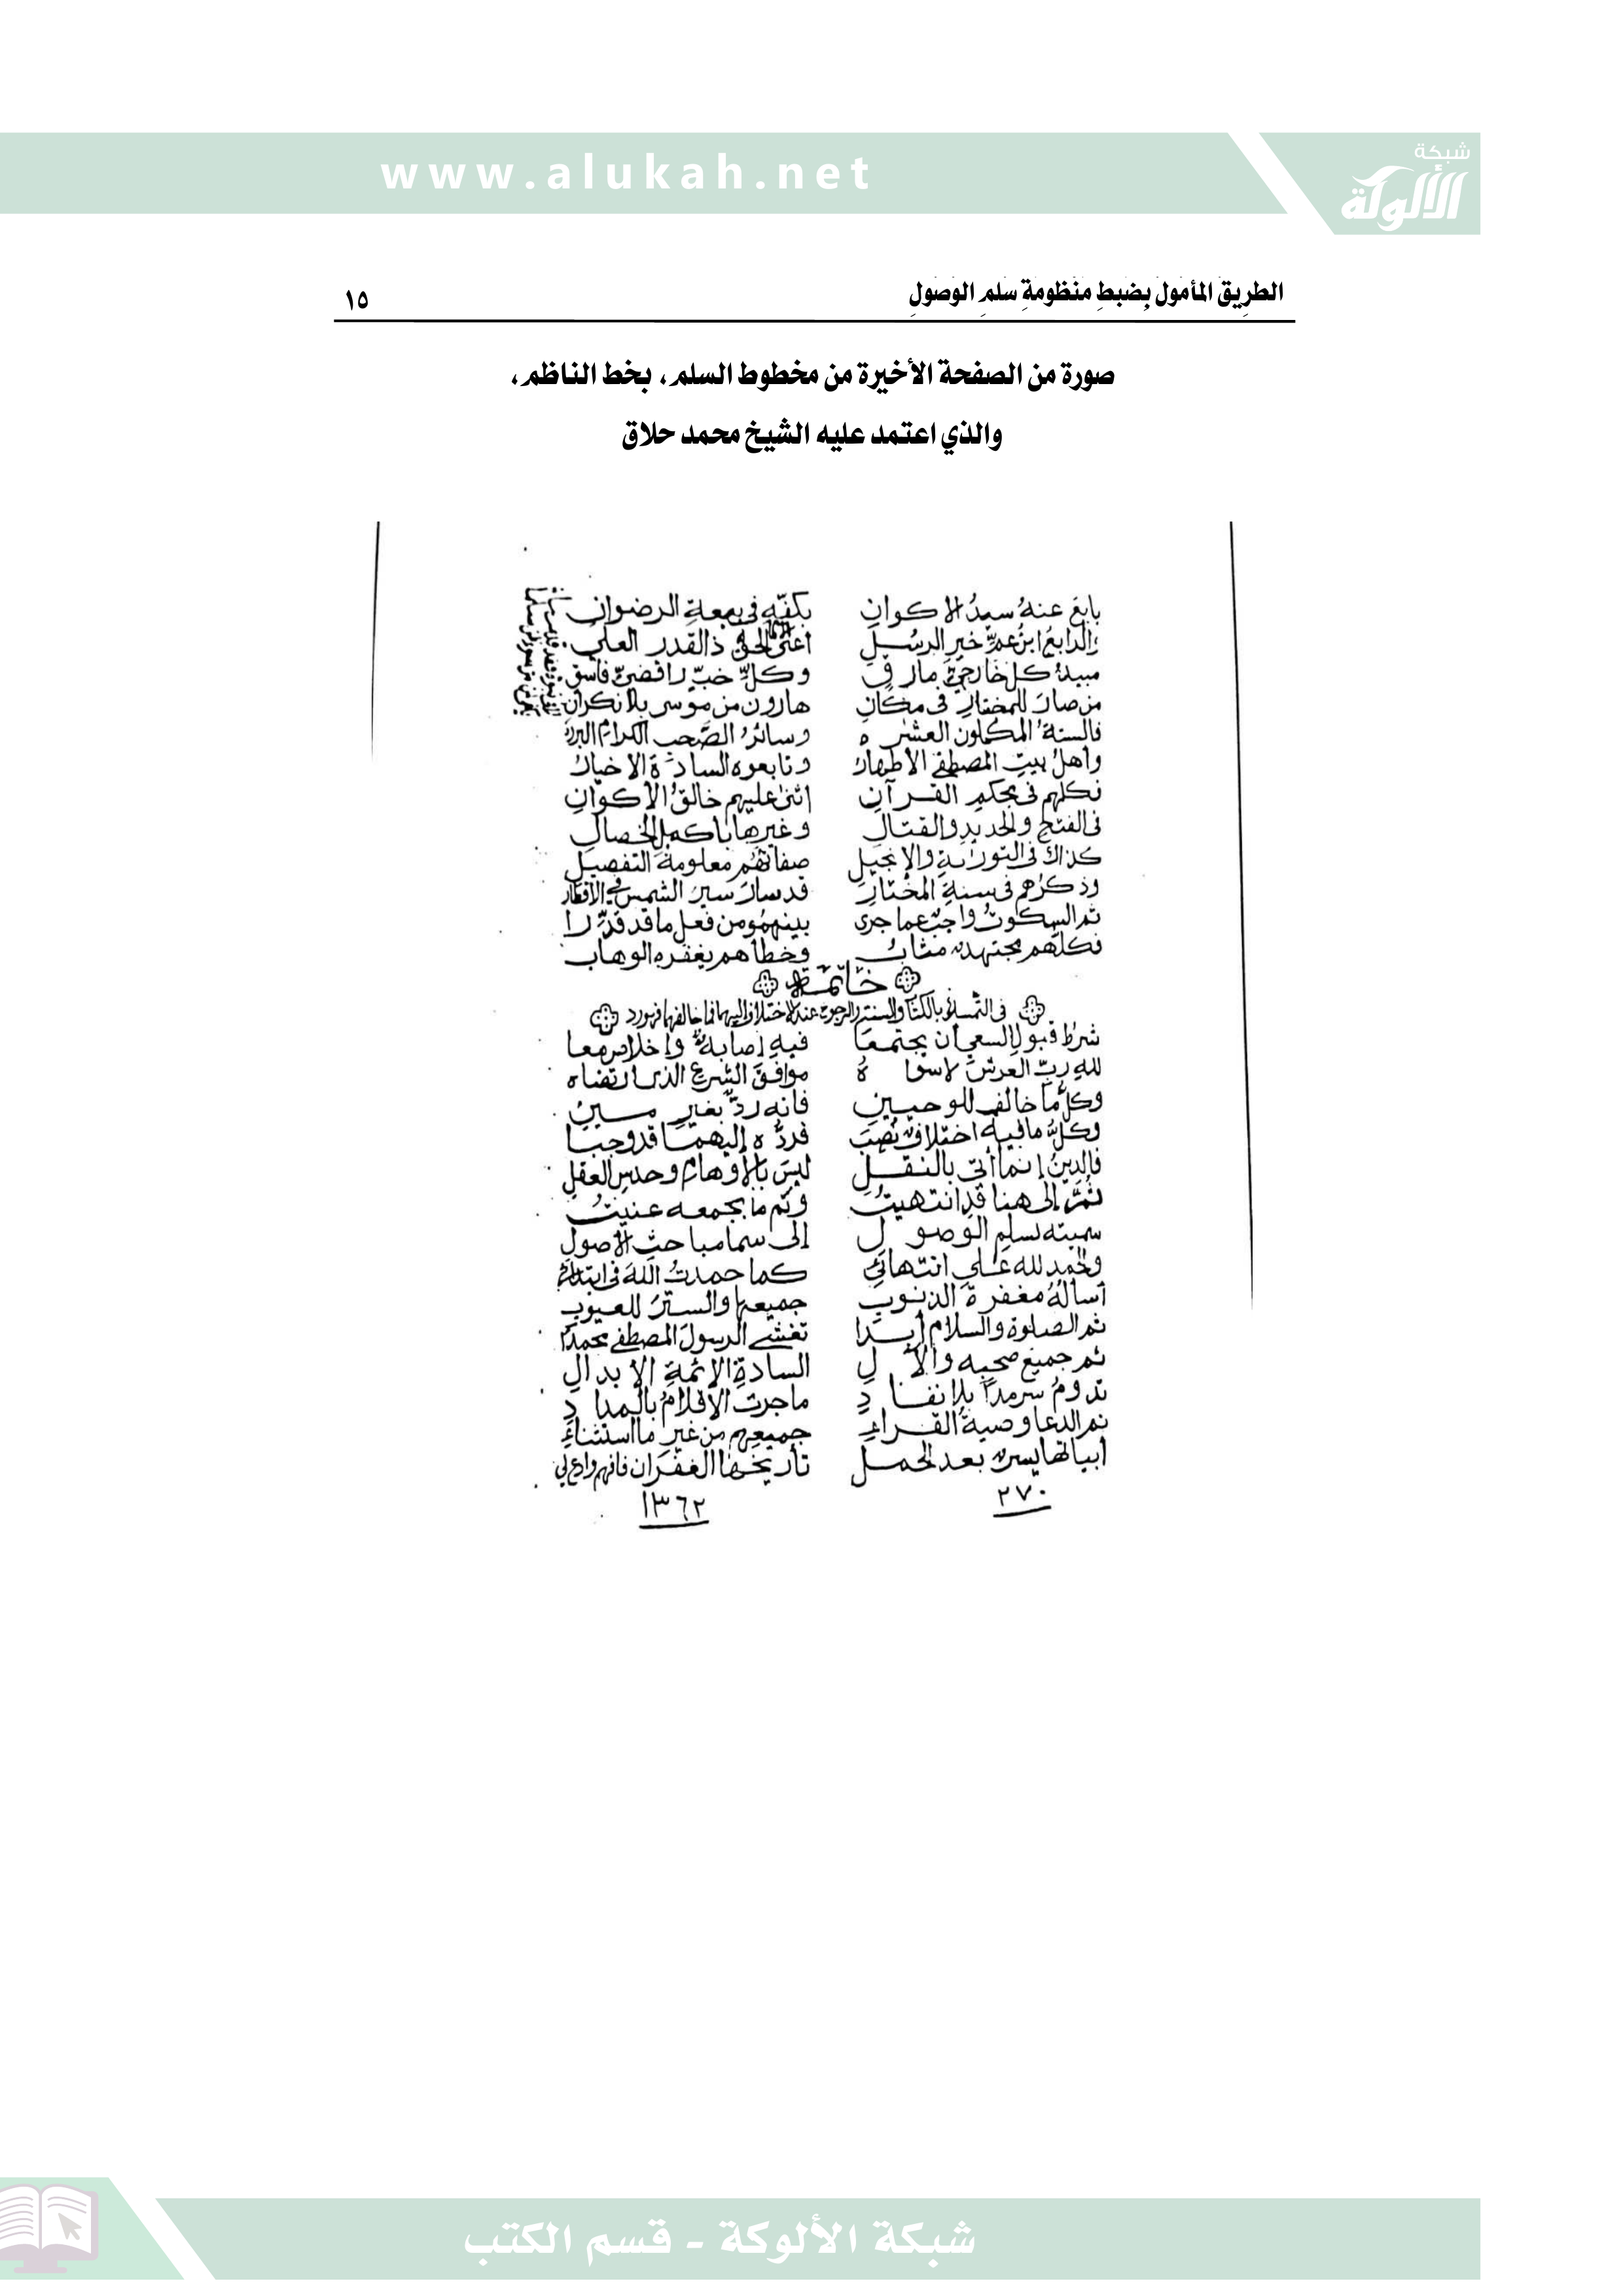 www.alukah.net
شبكة
الألوكة
الطريق المأمول بضبط منظومة سلم الوصول ١٥
صورة من الصفحة الأخيرة من مخطوط السلم، بخط الناظم،
والذي اعتمد عليه الشيخ محمد حلاق
بايع عنه سيد الاكوان بكفه في بيعة الرضوان
والرابع ابن عم خير الرسل اعني الامام الحق ذا القدر العلي
مبيد كل خارجي مارق وكل خب رافضي فاسق
من صار للمختار في مكان هارون من موسى بلا نكران
فالستة المكملون العشره وسائر الصحب الكرام البرره
واهل بيت المصطفى الاطهار وتابعوه السادة الاخيار
فكلهم في محكم القرآن اثنى عليهم خالق الاكوان
في الفتح والحديد والقتال وغيرها باكمل الخصال
كذاك في التوراة والانجيل صفاتهم معلومة التفصيل
وذكرهم في سنة المختار قد سار سير الشمس في الاقطار
ثم السكوت واجب عما جرى بينهمو من فعل ما قد قدرا
فكلهم مجتهد مثاب وخطأهم يغفره الوهاب
خاتمة
في التمسك بالكتاب والسنة والرجوع عند الاختلاف اليهما فما خالفهما فهو رد
شرط قبول السعي ان يجتمعا فيه إصابة وإخلاص معا
لله رب العرش لا سواه موافق الشرع الذي ارتضاه
وكل ما خالف للوحيين فانه رد بغير مين
وكل ما فيه اختلاف نصبا فرده اليهما قد وجبا
فالدين إنما أتى بالنقل ليس بالأوهام وحدس العقل
ثم إلى هنا قد انتهيت وتم ما بجمعه عنيت
سميته بسلم الوصول إلى سما مباحث الأصول
والحمد لله على انتهائي كما حمدت الله في ابتدائي
أسأله مغفرة الذنوب جميعها والستر للعيوب
ثم الصلوة والسلام أبدا تغشى الرسول المصطفى محمدا
ثم جميع صحبه والآل السادة الائمة الابدال
تدوم سرمداً بلا نفاد ما جرت الأقلام بالمداد
ثم الدعا وصية القراء جميعهم من غير ما استثناء
أبياتها يسر بعد الجمل تأريخها الغفران فافهم وادع لي
٢٧٠ ١٣٦٢
شبكة الألوكة - قسم الكتب